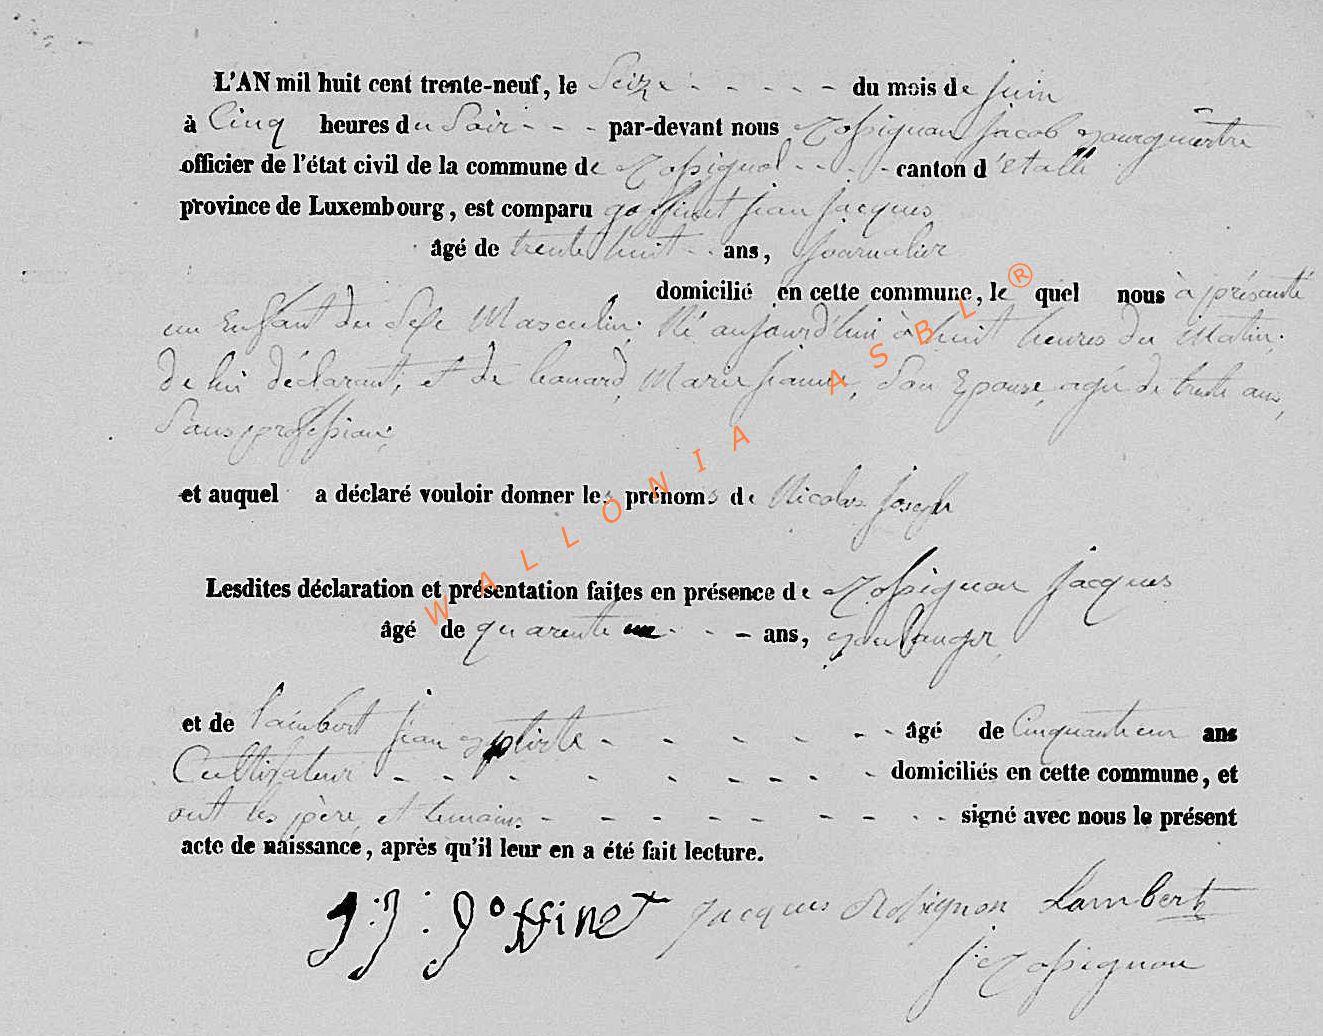 L'AN mil huit cent trente-neuf, le Seize - - - - - du mois de juin
à Cinq heures du Soir - - - par-devant nous Rossignon Jacob Bourguemtre
officier de l'état civil de la commune de Rossignol - - - - canton d'étalle
province de Luxembourg, est comparu goffinet jean jacques
âgé de trente huit - - ans, Journalier
domicilié en cette commune, le quel nous à présenté
un Enfant du Sexe Masculin. Né aujourd'hui à huit heures du Matin.
De lui déclarant, et de Marie jeanne, Son Epouse, agée de trente ans,
Sans profession;
et auquel a déclaré vouloir donner les prénoms de Nicolas Joseph
Lesdites déclaration et présentation faites en présence de Rossignon Jacques
âgé de quarante un - - - ans, Boulanger
et de Lambert Jean Bptiste - - - - - - - âgé de Cinquante un ans
Cultivateur - - - - - - - - - domiciliés en cette commune, et
ont les père, et témoins - - - - - - - - - signé avec nous le présent
acte de naissance, après qu'il leur en a été fait lecture.
J: J: Goffinet Jacques Rossignon Lambert
J: Rossignon
WALLONIA ASBL ®